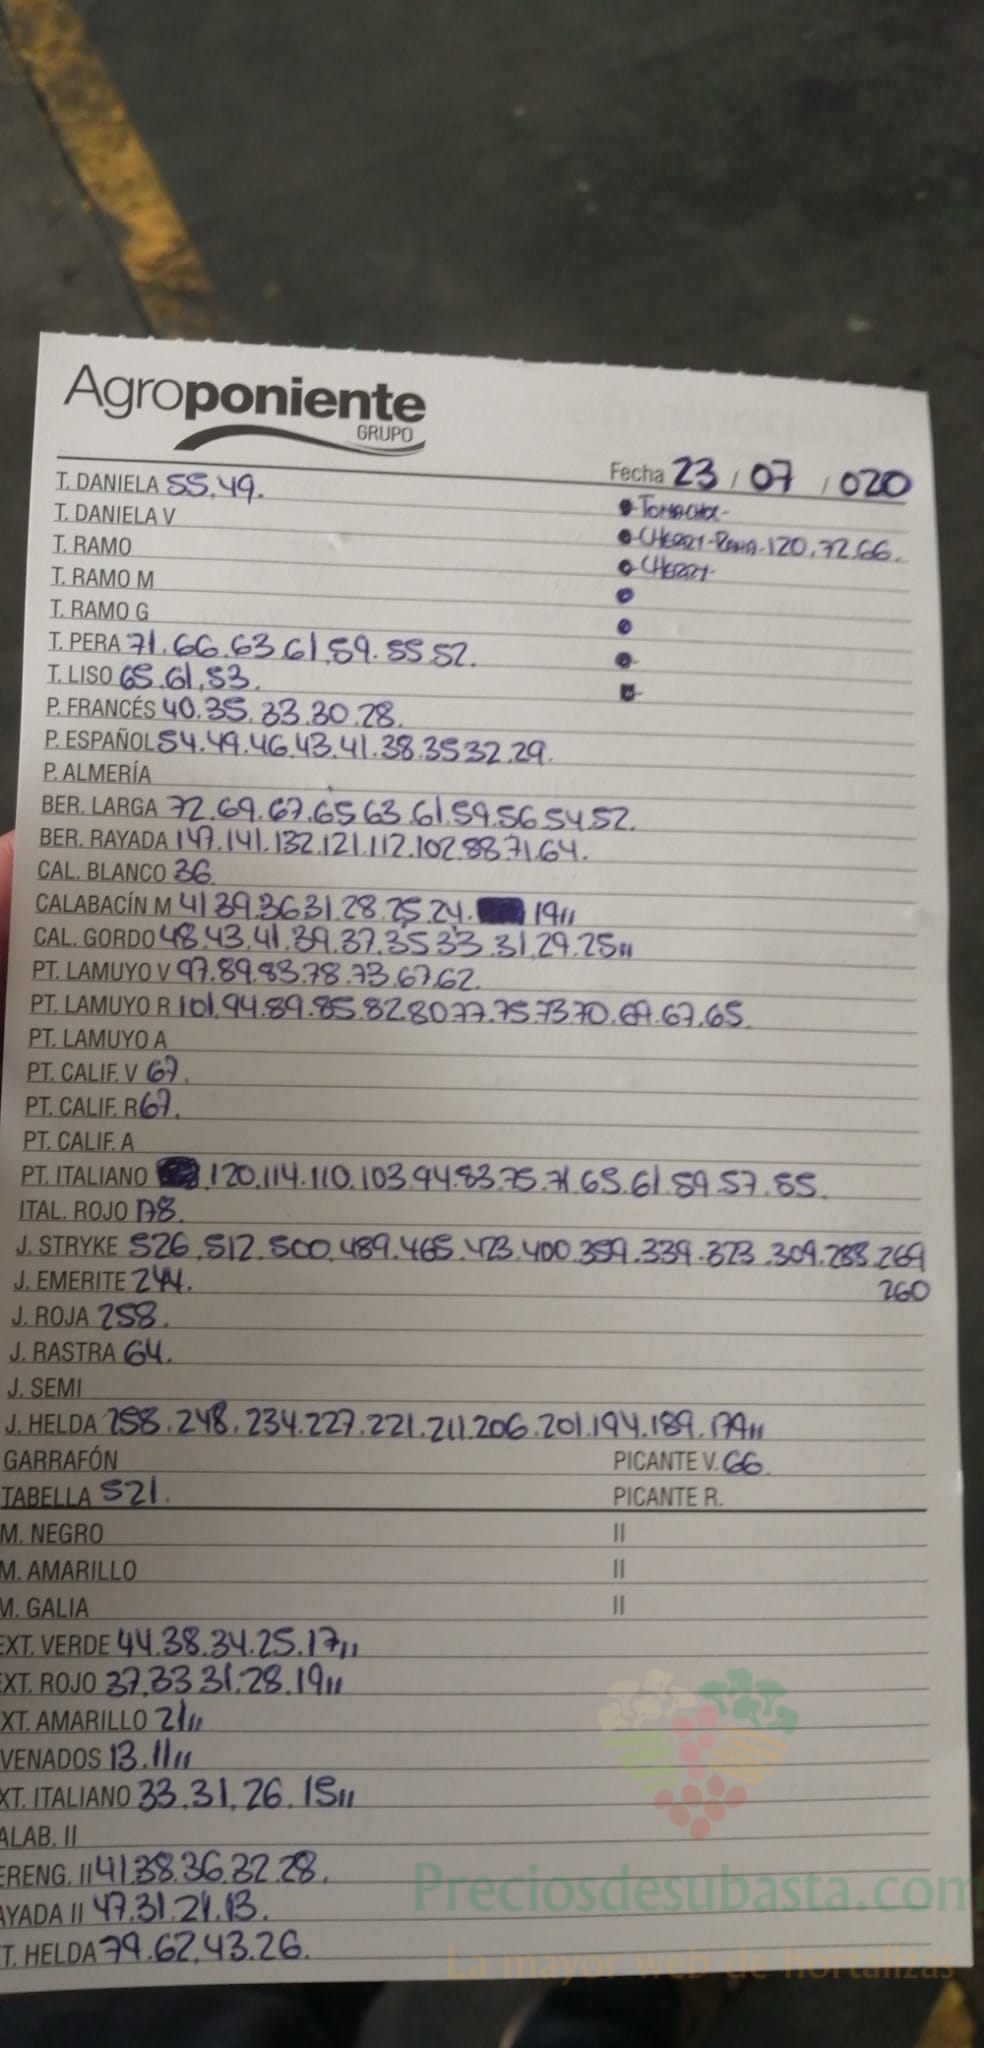 Agroponiente
GRUPO
Fecha 23 / 07 / 020
T. DANIELA 55.49.
T. DANIELA V
T. RAMO
CHERRY-RAMA-120.72.66.
T. RAMO M
CHERRY-
T. RAMO G
T. PERA 71.66.63.61.59.55.52.
T. LISO 65.61.53.
P. FRANCÉS 40.35.33.30.28.
P. ESPAÑOL 54.49.46.43.41.38.35.32.29.
P. ALMERÍA
BER. LARGA 72.69.67.65.63.61.59.56.54.52.
BER. RAYADA 147.141.132.121.112.102.88.71.64.
CAL. BLANCO 36
CALABACÍN M 41.39.36.31.28.25.24. 19,,
CAL. GORDO 48.43.41.39.37.35.33.31.29.25,,
PT. LAMUYO V 97.89.83.78.73.67.62.
PT. LAMUYO R 101.94.89.85.82.80.77.75.73.70.69.67.65.
PT. LAMUYO A
PT. CALIF. V 67.
PT. CALIF. R 67.
PT. CALIF. A
PT. ITALIANO .120.114.110.103.94.83.75.71.65.61.59.57.55.
ITAL. ROJO 178.
J. STRYKE 526.512.500.489.465.423.400.359.339.323.309.288.269
260
J. EMERITE 244.
J. ROJA 258.
J. RASTRA 64.
J. SEMI
J. HELDA 258.248.234.227.221.211.206.201.194.189.179,,
GARRAFÓN PICANTE V. 66.
TABELLA 521. PICANTE R.
M. NEGRO II
M. AMARILLO II
M. GALIA II
EXT. VERDE 44.38.34.25.17,,
EXT. ROJO 37.33.31.28.19,,
XT. AMARILLO 21,,
VENADOS 13.11,,
XT. ITALIANO 33.31.26.15,,
ALAB. II
ERENG. II 41.38.36.32.28.
AYADA II 47.31.21.13.
T. HELDA 79.62.43.26.
Preciosdesubasta.com
La mayor web de hortalizas